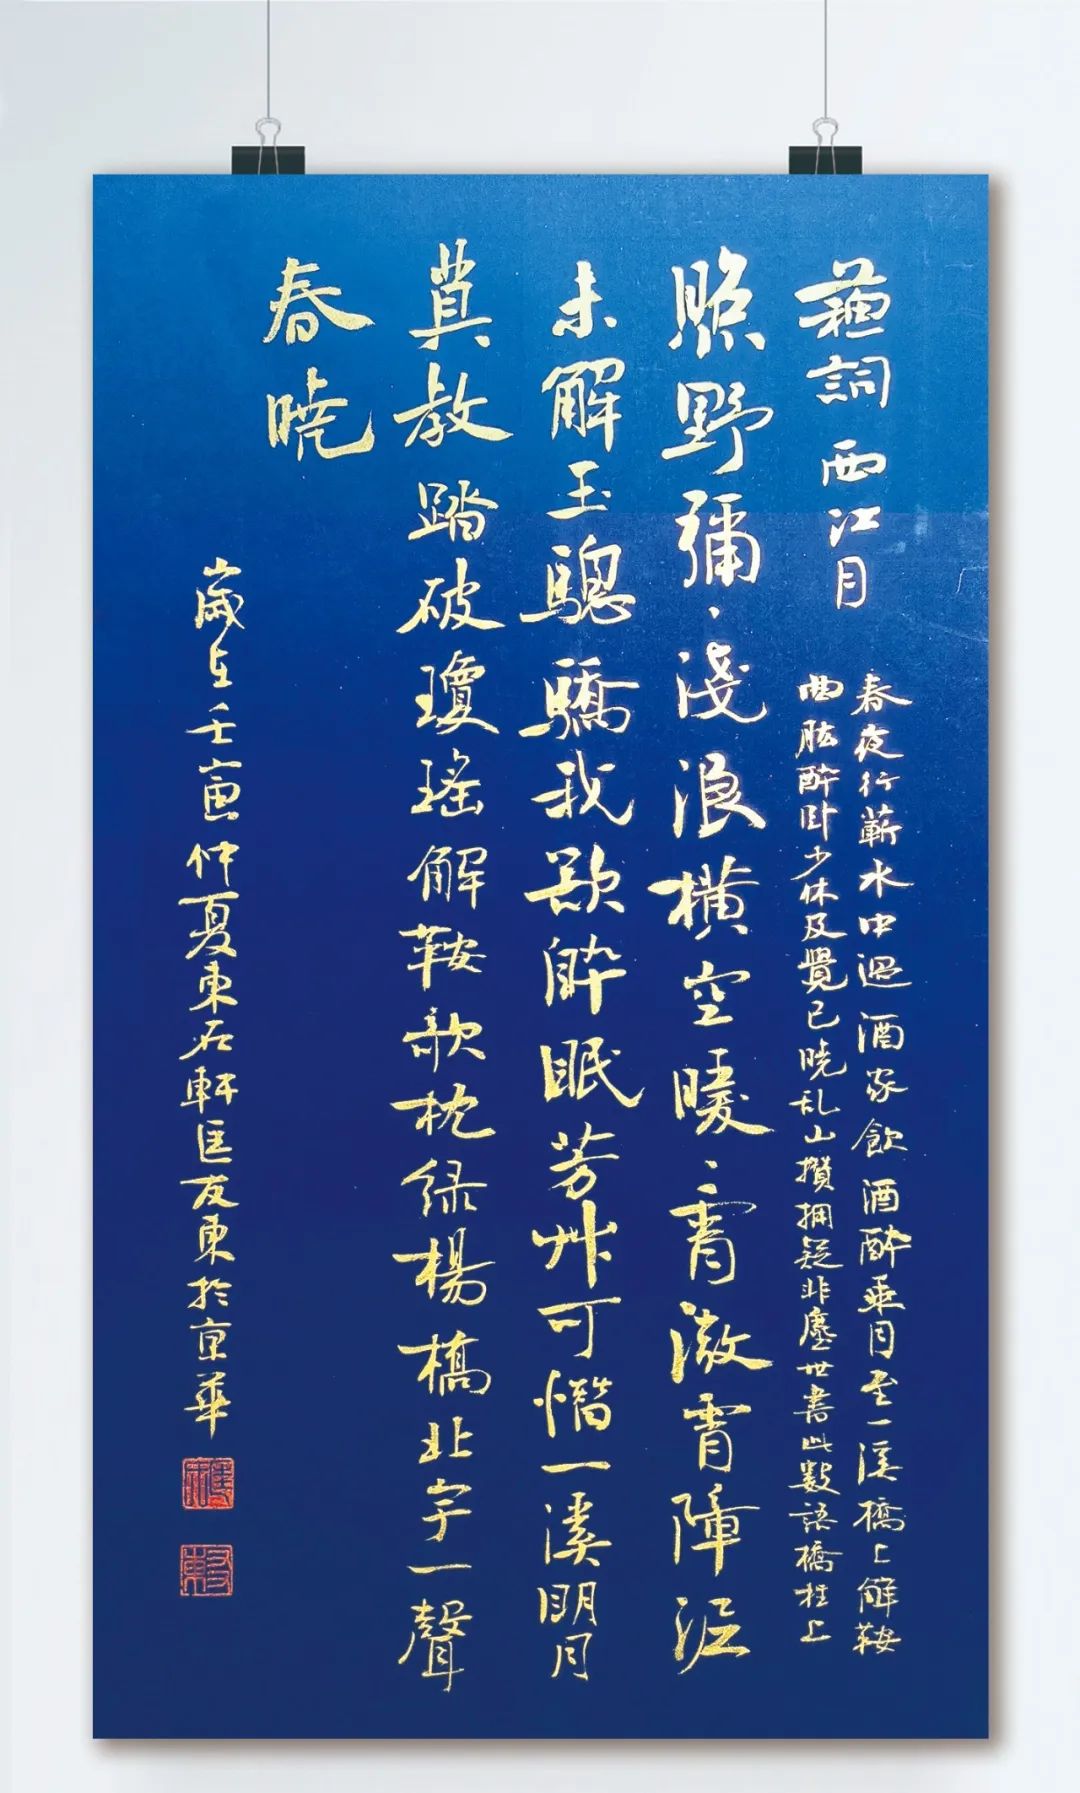 蘓詞 西江月
春夜行蘄水中過酒家飲酒醉乘月至一溪橋上解鞍
曲肱醉卧少休及覺已曉乱山攢擁疑非塵世書此數語橋柱上
照野彌、淺浪橫空曖、霄微霄障泥
未解玉驄驕我欲醉眠芳艸可惜一溪明月
莫教踏破瓊瑤解鞍欹枕緑楊橋杜宇一聲
春曉
歲在壬寅仲夏東石軒匡友東於京華